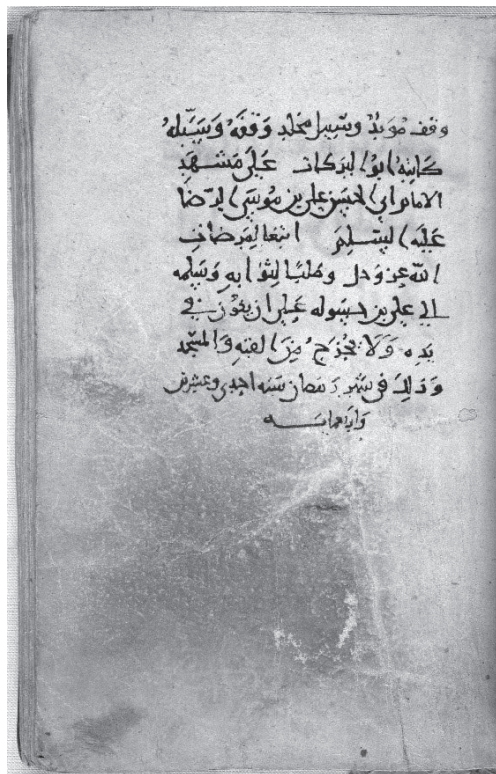 وقف مؤبد وسبيل مخلد وقفه وسبّله
كاتبه ابو البركات على مشهد
الامام ابي الحسن علي بن موسى الرّضا
عليه السلم ابتغا لمرضات
الله عز وجل وطلبا لثوابه وسلمه
الي علي بن حسوله على ان يكون في
يده ولا يخرج من القبه والمسجد
وذلك في شهر رمضان سنه احدى وعشرين
واربعمايه